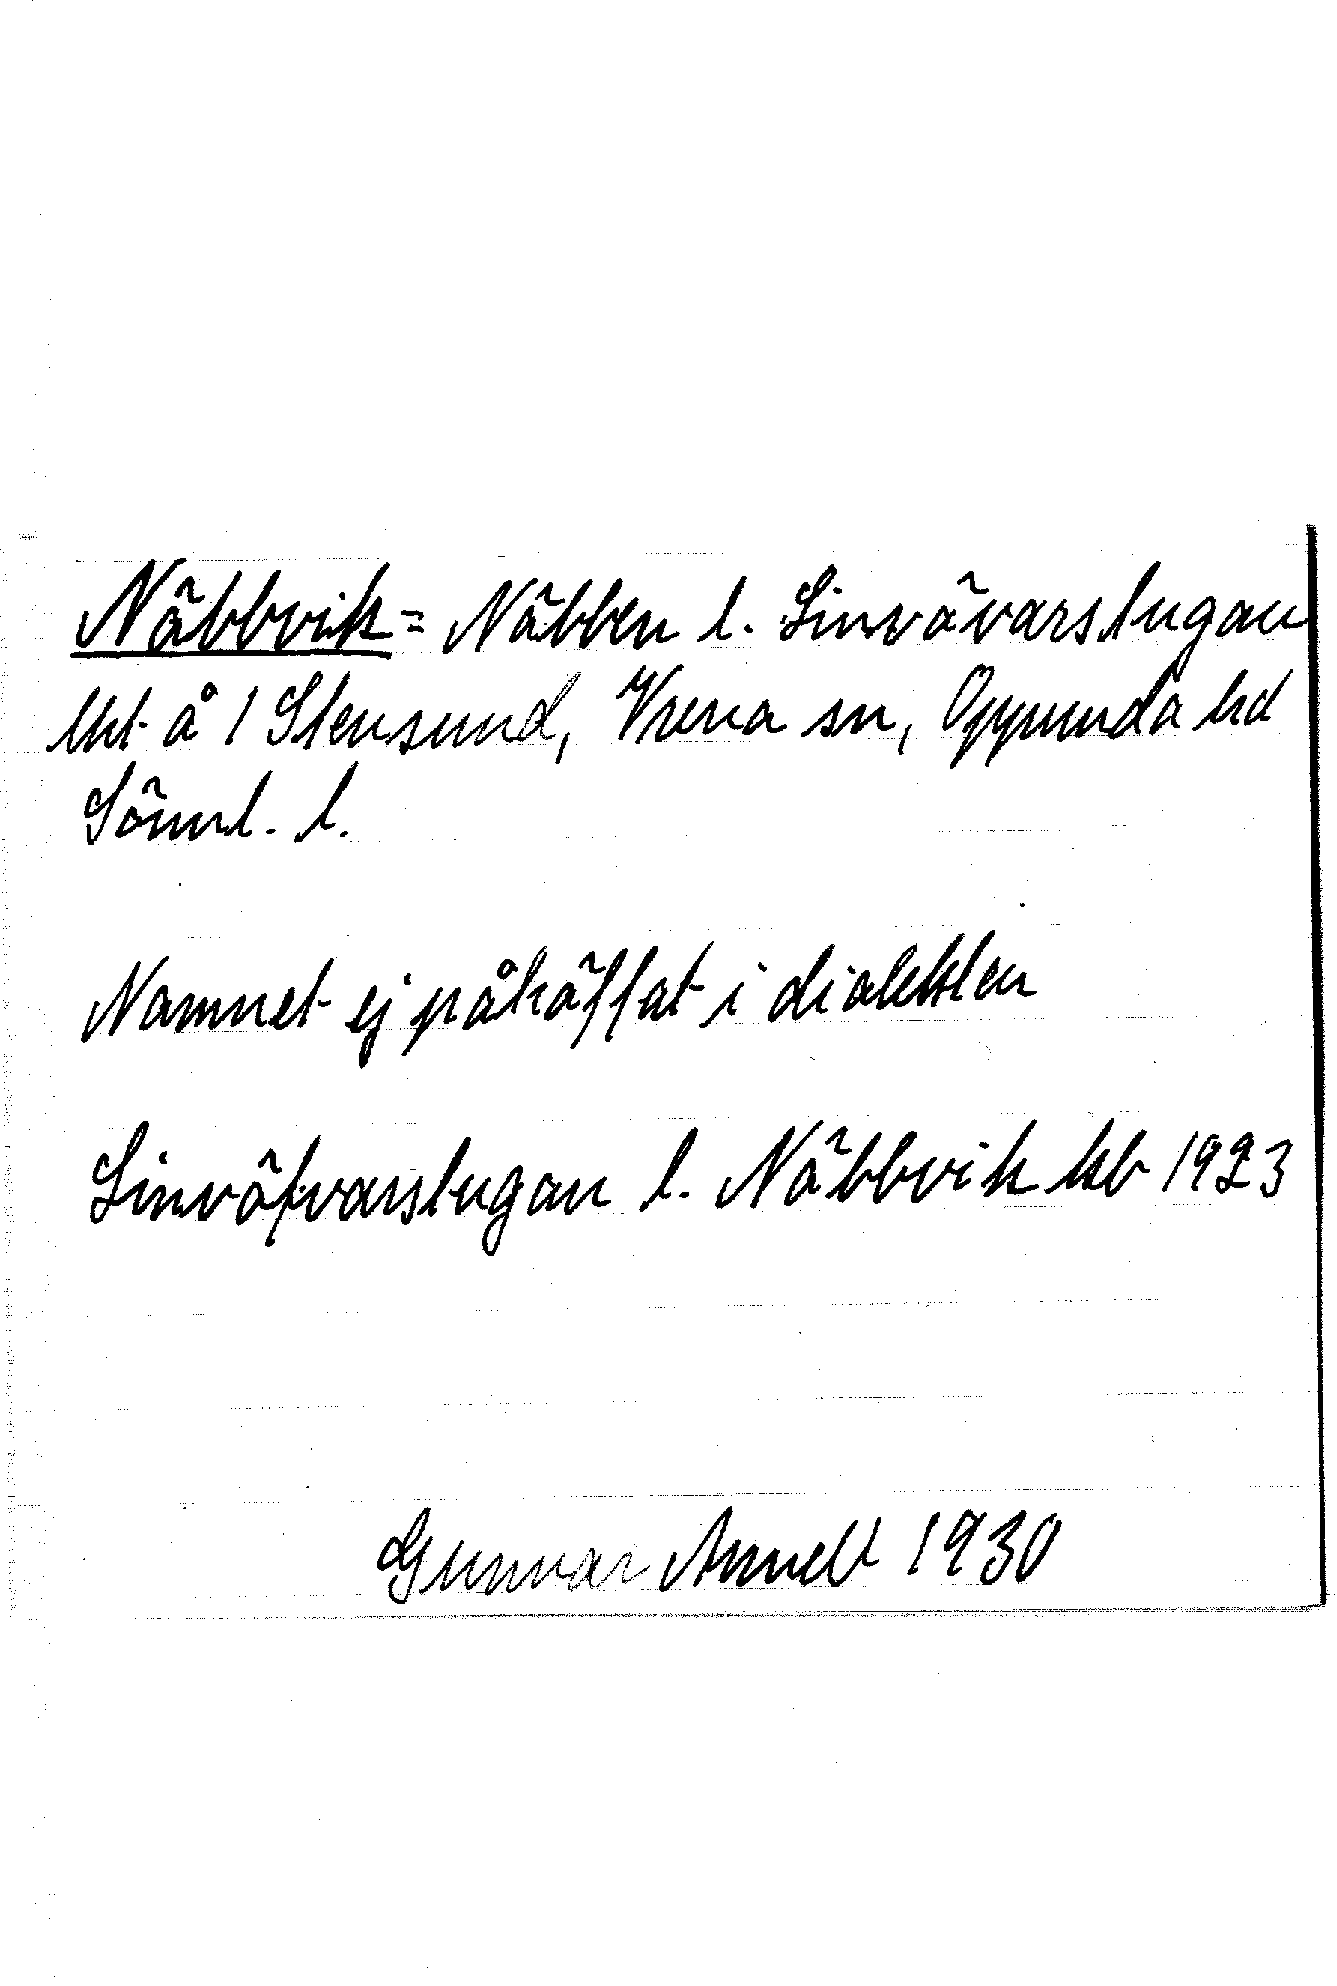 Näbbvik = Näbben l. Linvävarstugan
lht å 1 Stensund, Vrena sn, Oppunda hd
Sörml. l.
Namnet ej påträffat i dialekten
Linväfvarstugan l. Näbbvik kb 1923
Gunnar Annell 1930